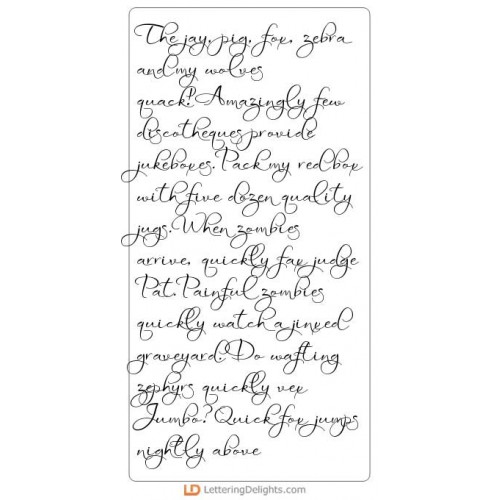 The jay, pig, fox, zebra
and my wolves
quack! Amazingly few
discotheques provide
jukeboxes. Pack my red box
with five dozen quality
jugs. When zombies
arrive, quickly fax judge
Pat. Painful zombies
quickly watch a jinxed
graveyard! Do wafting
zephyrs quickly vex
Jumbo? Quick fox jumps
nightly above
LD LetteringDelights.com